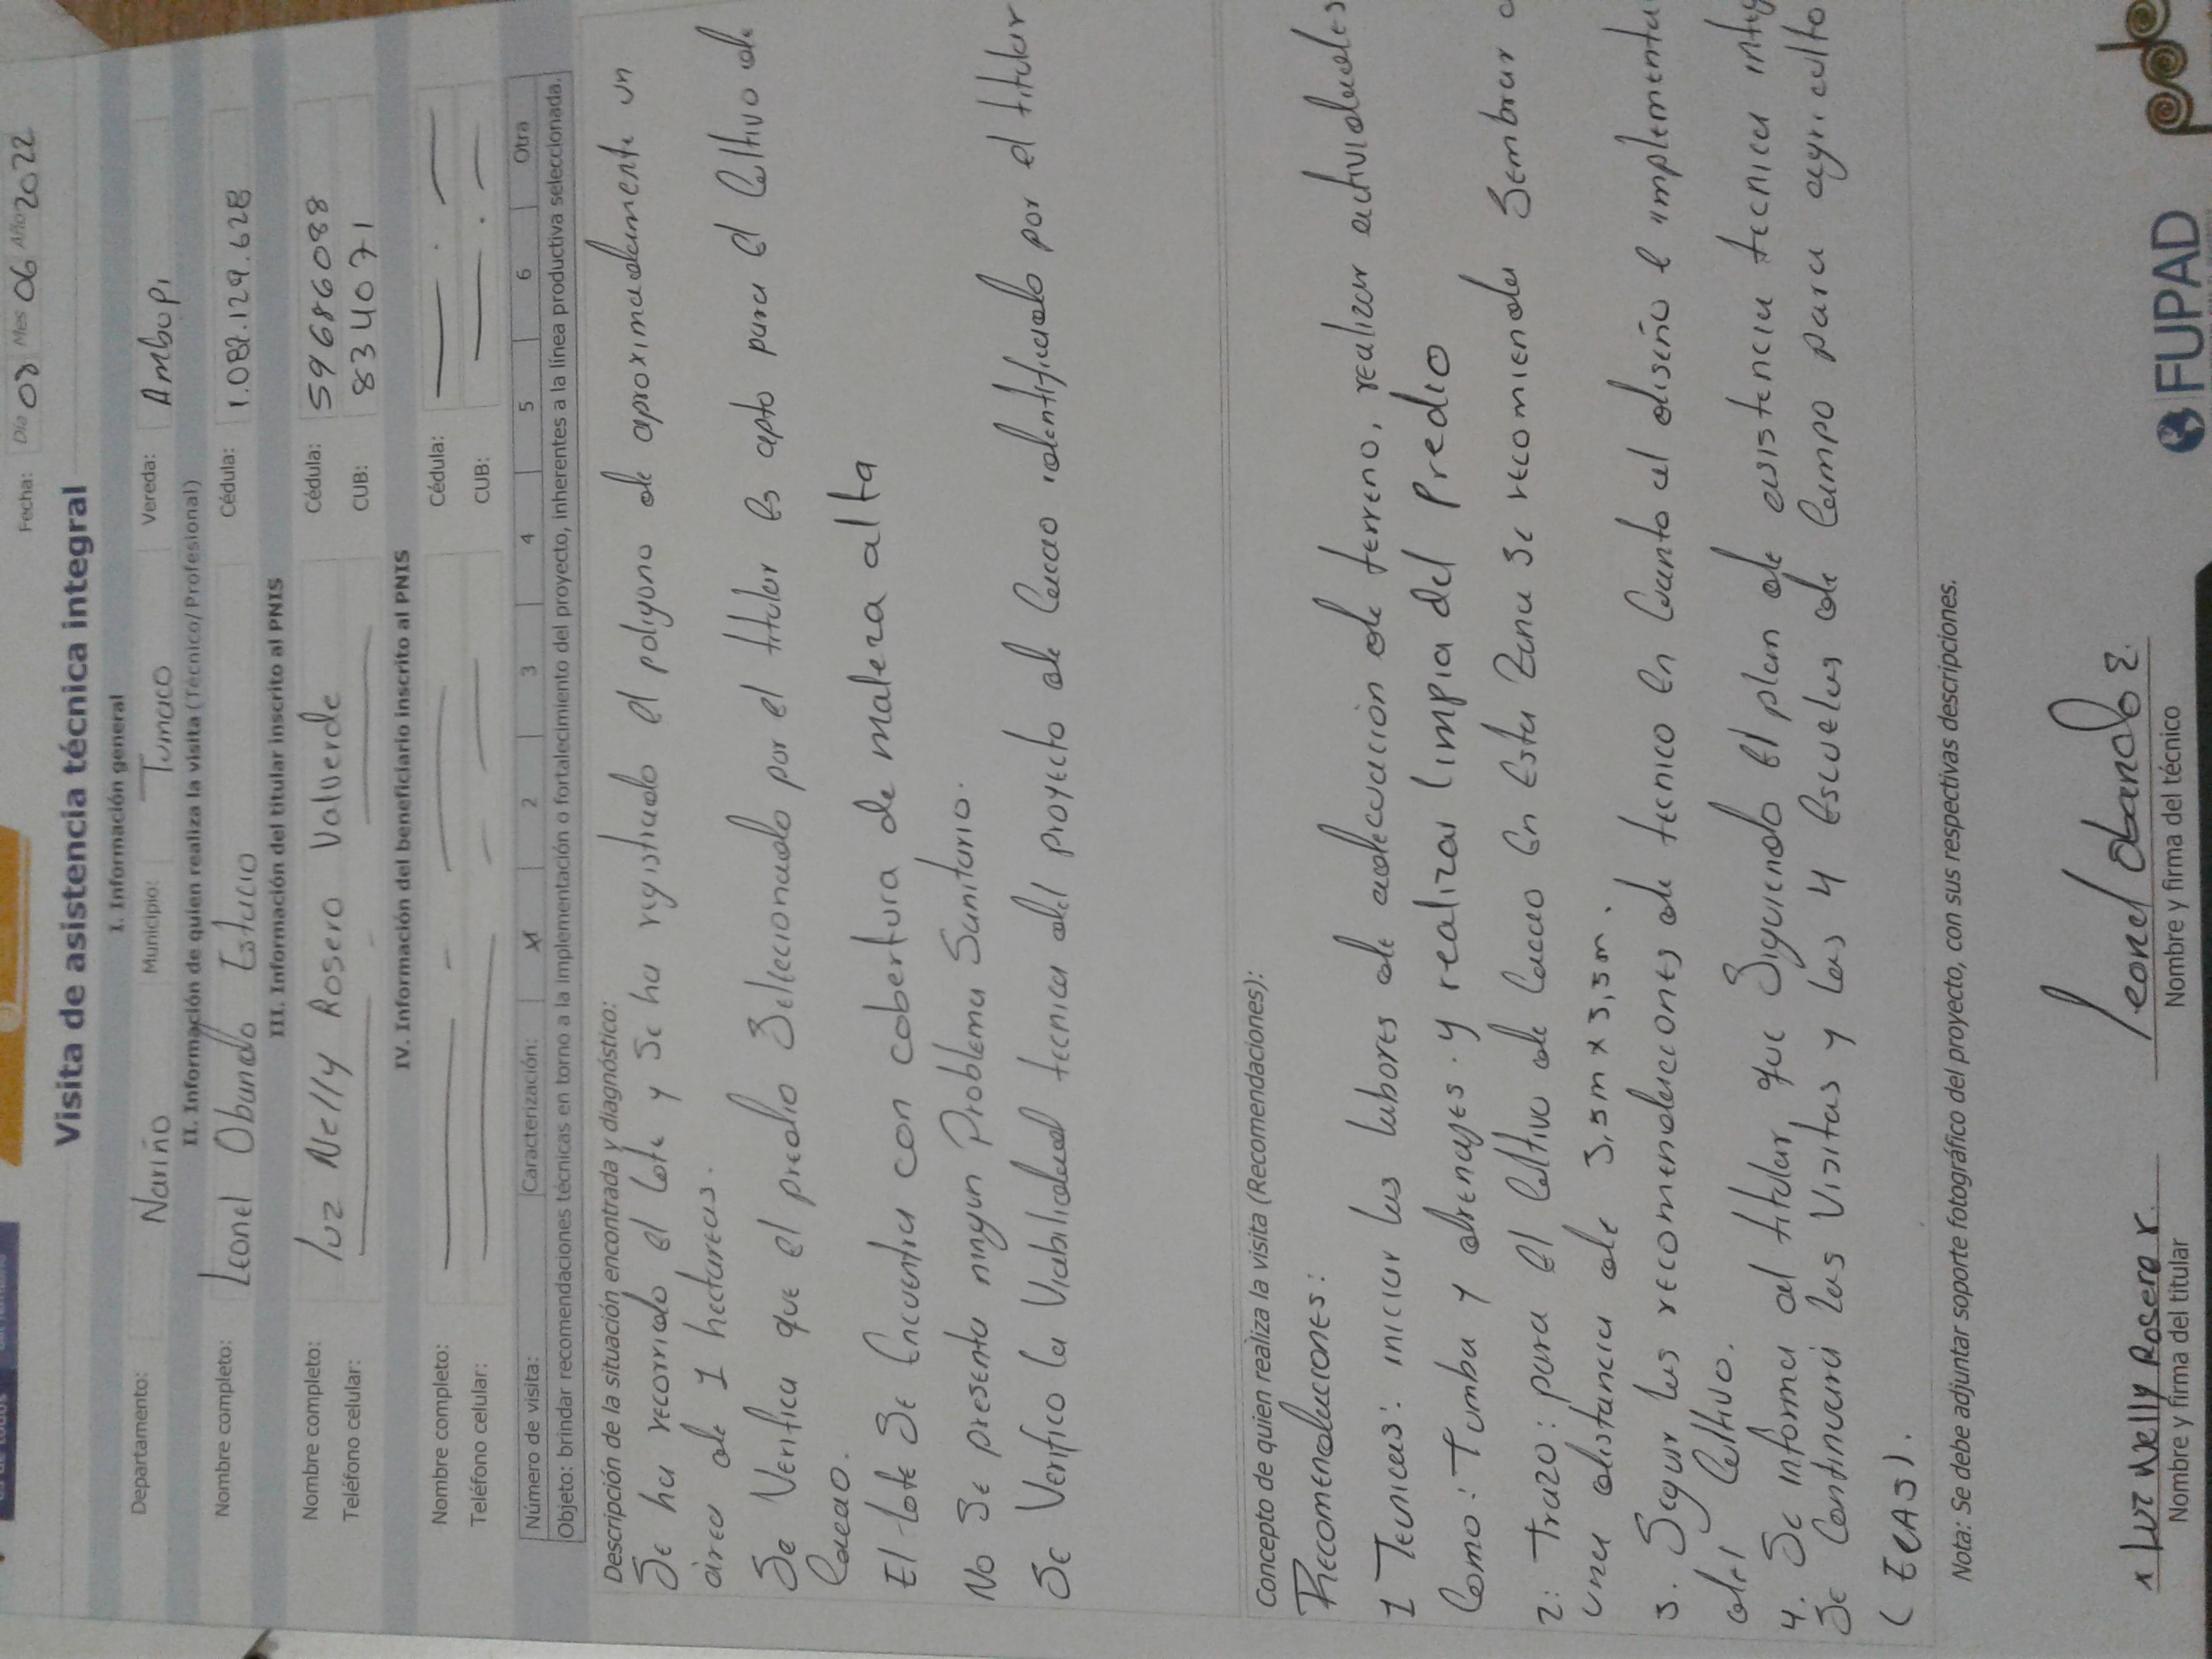 Fecha: Día 08 Mes 06 Año 2022
Visita de asistencia técnica integral
I. Información general
Departamento: Nariño Municipio: Tumaco Vereda: Ambupi
II. Información de quien realiza la visita (Técnico/Profesional)
Nombre completo: Leonel Obando Estacio Cédula: 1.087.129.628
III. Información del titular inscrito al PNIS
Nombre completo: luz Nelly Rosero Valverde Cédula: 59686088
Teléfono celular: CUB: 8334071
IV. Información del beneficiario inscrito al PNIS
Nombre completo: Cédula:
Teléfono celular: CUB:
Número de visita: Caracterización: X 2 3 4 5 6 Otra
Objeto: brindar recomendaciones técnicas en torno a la implementación o fortalecimiento del proyecto, inherentes a la línea productiva seleccionada.
Descripción de la situación encontrada y diagnóstico:
Se ha recorrido el lote y Se ha registrado el poligono de aproximadamente un
area de 1 hectareas.
Se Verifica que el predio Seleccionado por el titular es apto para el Cultivo de
Cacao.
El lote Se Encuentra con cobertura de maleza alta
No Se presenta ningun Problema Sanitario.
Se Verifico la Viabilidad tecnica del proyecto de Cacao identificado por el titular
Concepto de quien realiza la visita (Recomendaciones):
Recomendaciones:
1 Tecnicas: iniciar las labores de adecuación de terreno, realizar actividades
Como: Tumba y drenajes. y realizar limpia del Predio
2: trazo: para el Cultivo de Cacao en esta Zona se recomienda Sembrar a
una distancia de 3,5m x 3,5m.
3. Seguir las recomendaciones de tecnico en Cuanto al diseño e implementa
del Cultivo.
4. Se informa al titular que Siguiendo el plan de asistencia tecnica integ
Se Continuará las Visitas y las 4 escuelas de Campo para agricolto
(ECAS).
Nota: Se debe adjuntar soporte fotográfico del proyecto, con sus respectivas descripciones.
x luz Nelly Rosero r. Leonel Obando E.
Nombre y firma del titular Nombre y firma del técnico
FUPAD